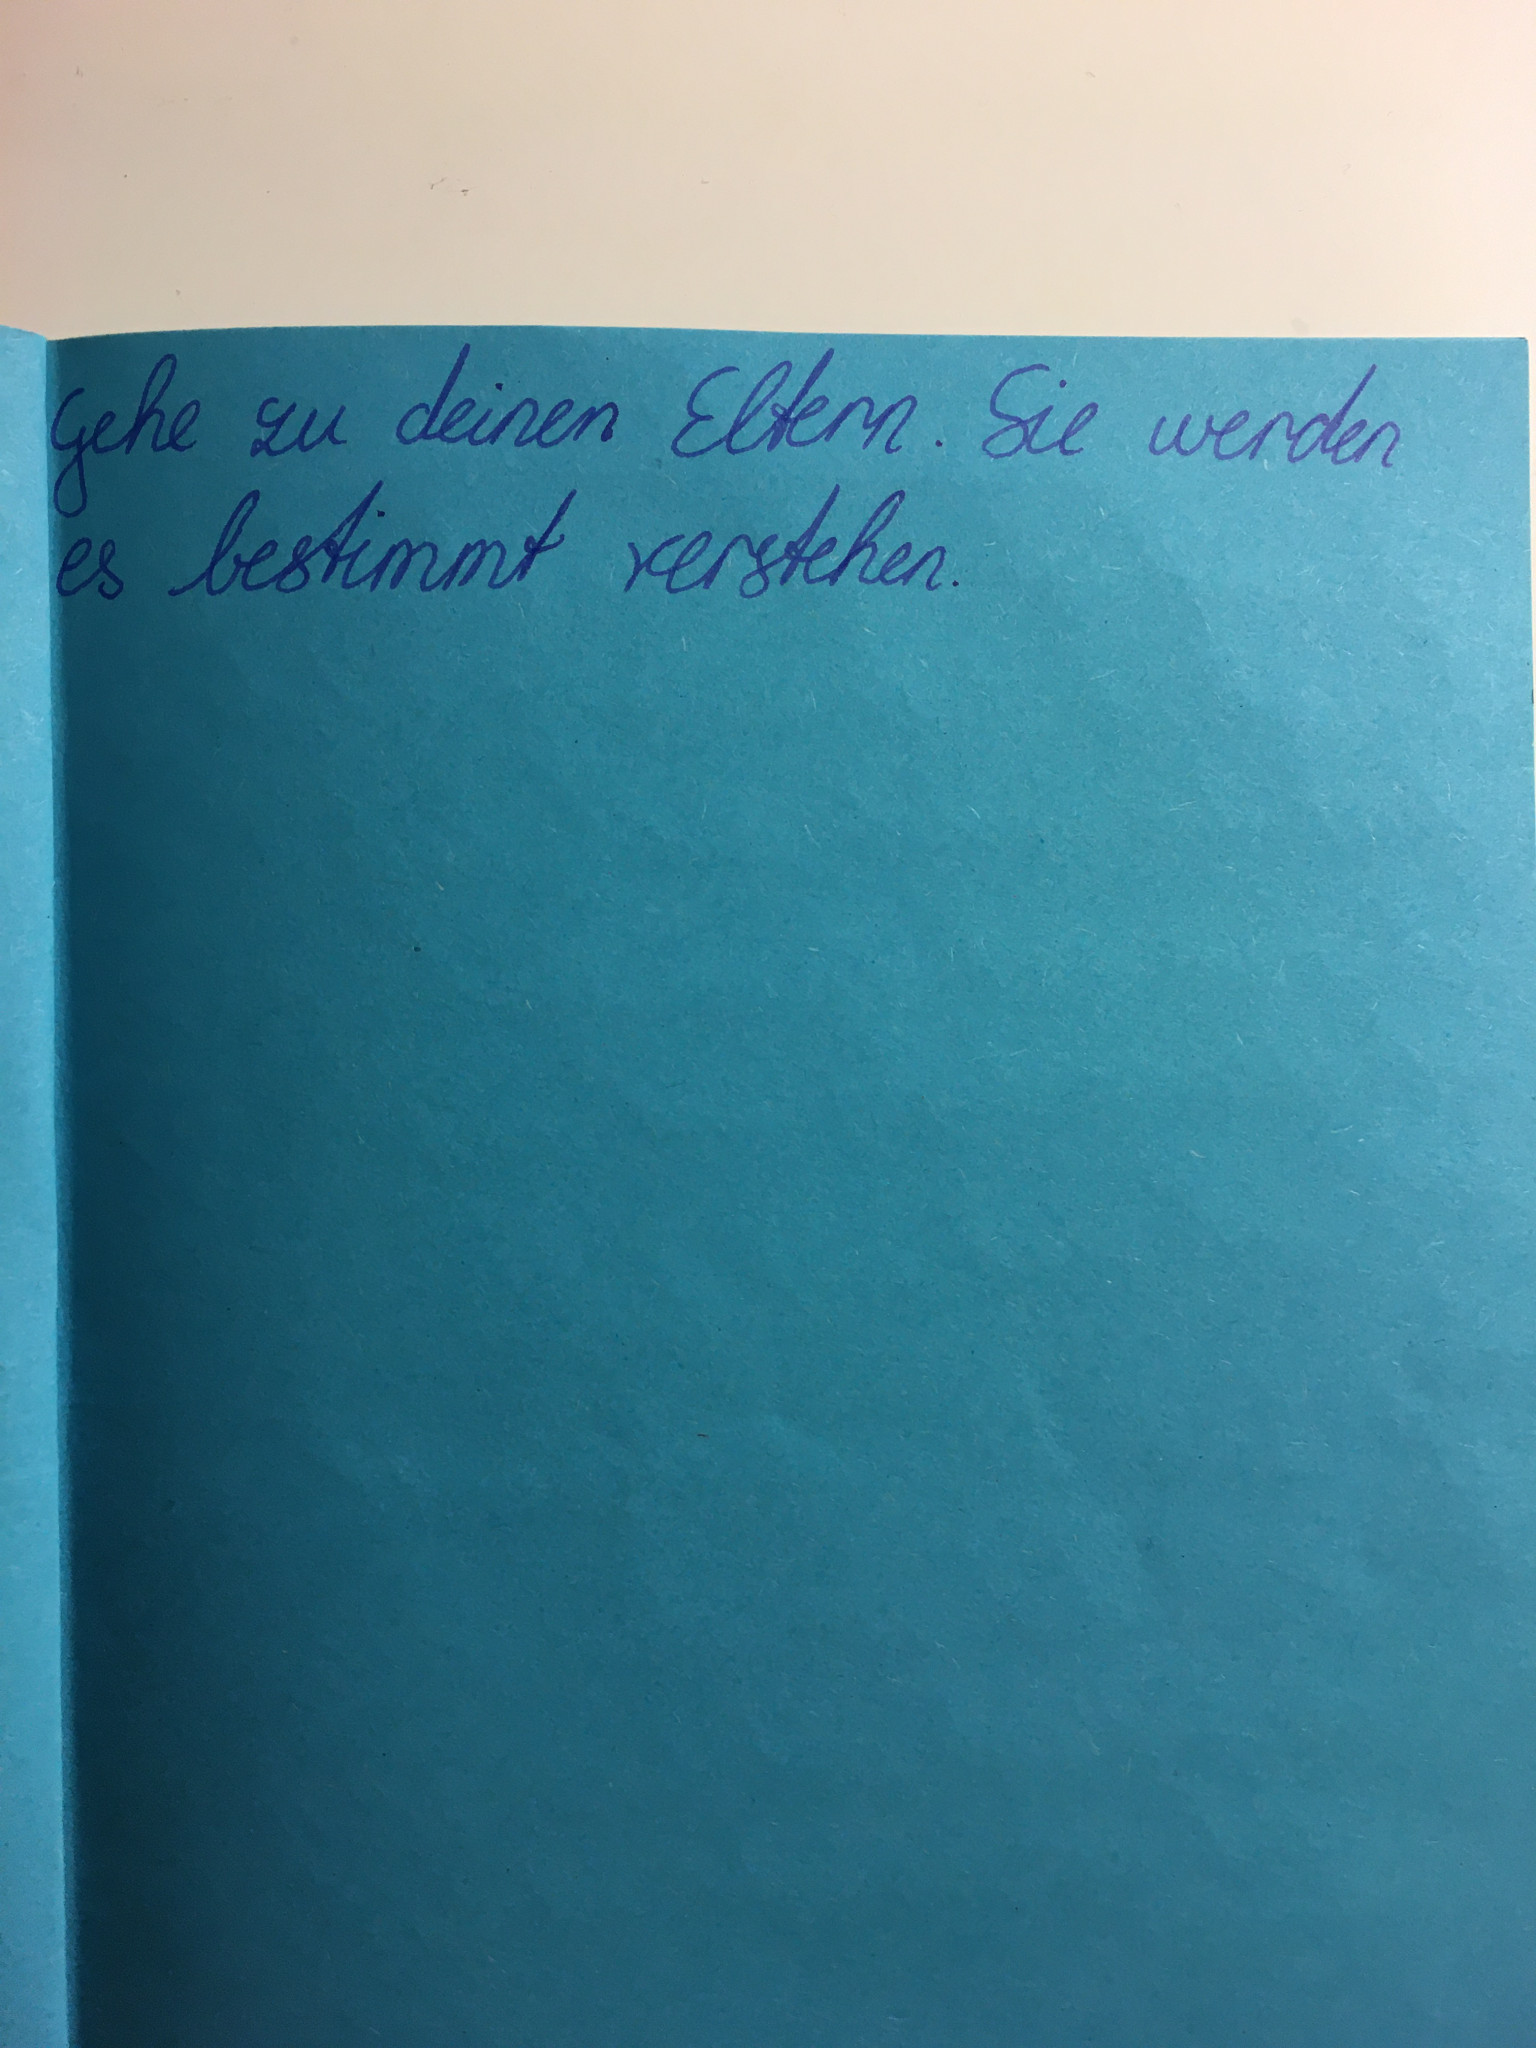 Gehe zu deinen Eltern. Sie werden
es bestimmt verstehen.